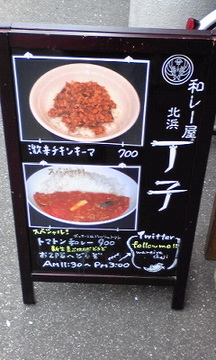 和レー屋
北浜
丁子
激辛チキンキーマ 700
スペシャル!
スペシャル!
トマトンカレー 900
AM 11:30 ~ PM 3:00
Twitter
follow me!!